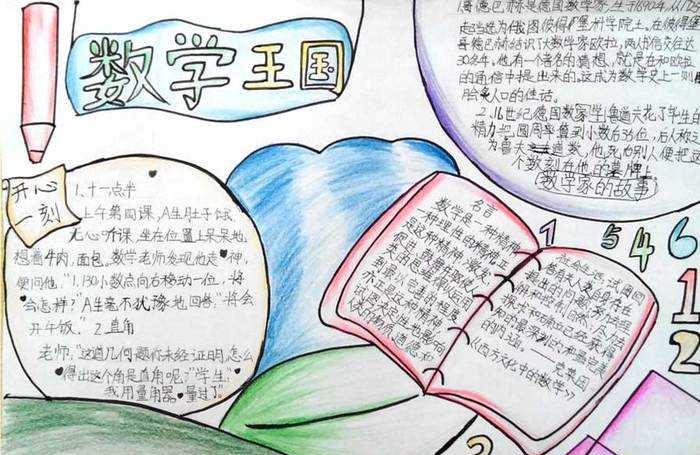 数学王国
开心
一刻
1、十一点半
上午第四课，A生肚子饿，
无心听课，坐在位置上呆呆地
想着牛肉，面包。数学老师发现他走神，
便问他，"1.130小数点向右移动一位，将
会怎样？"A生毫不犹豫地回答："将会
开午饭。" 2.直角
老师，"这道几何题未经证明，怎么
得出这个角是直角呢？"学生：
我用量角器量过了。
哥德巴赫是德国数学家，生于1690年，从1725
起当选为俄国彼得堡科学院士。在彼得堡
哥德巴赫结识了大数学家欧拉，两人书信交往达
30多年。他有一个著名的猜想，就是在和欧拉
的通信中提出来的。这成为数学史上一则脍
脍炙人口的佳话。
2.16世纪德国数学家鲁道夫花了毕生的
精力，把圆周率算到小数后35位，后人称之
为鲁道夫数，他死后别人便把这
数刻在他的墓碑上
(数学家的故事)
名言
数学是一种精神，
一种理性的精神。正
是这种精神，激发，
促进，鼓舞并驱使人
类的思维得以运用
到最完善的程度，
亦正是这种精神，
试图决定性地影响
人类的物质，道德和
社会生活；试图回
答有关人类自身存在
提出的问题；努力去理
解和控制自然；尽力去
探求和确立已经获得
知识的最深刻的和最完美
的内涵。——克莱因
《西方文化中的数学》
1 5 4 6
1
2
2